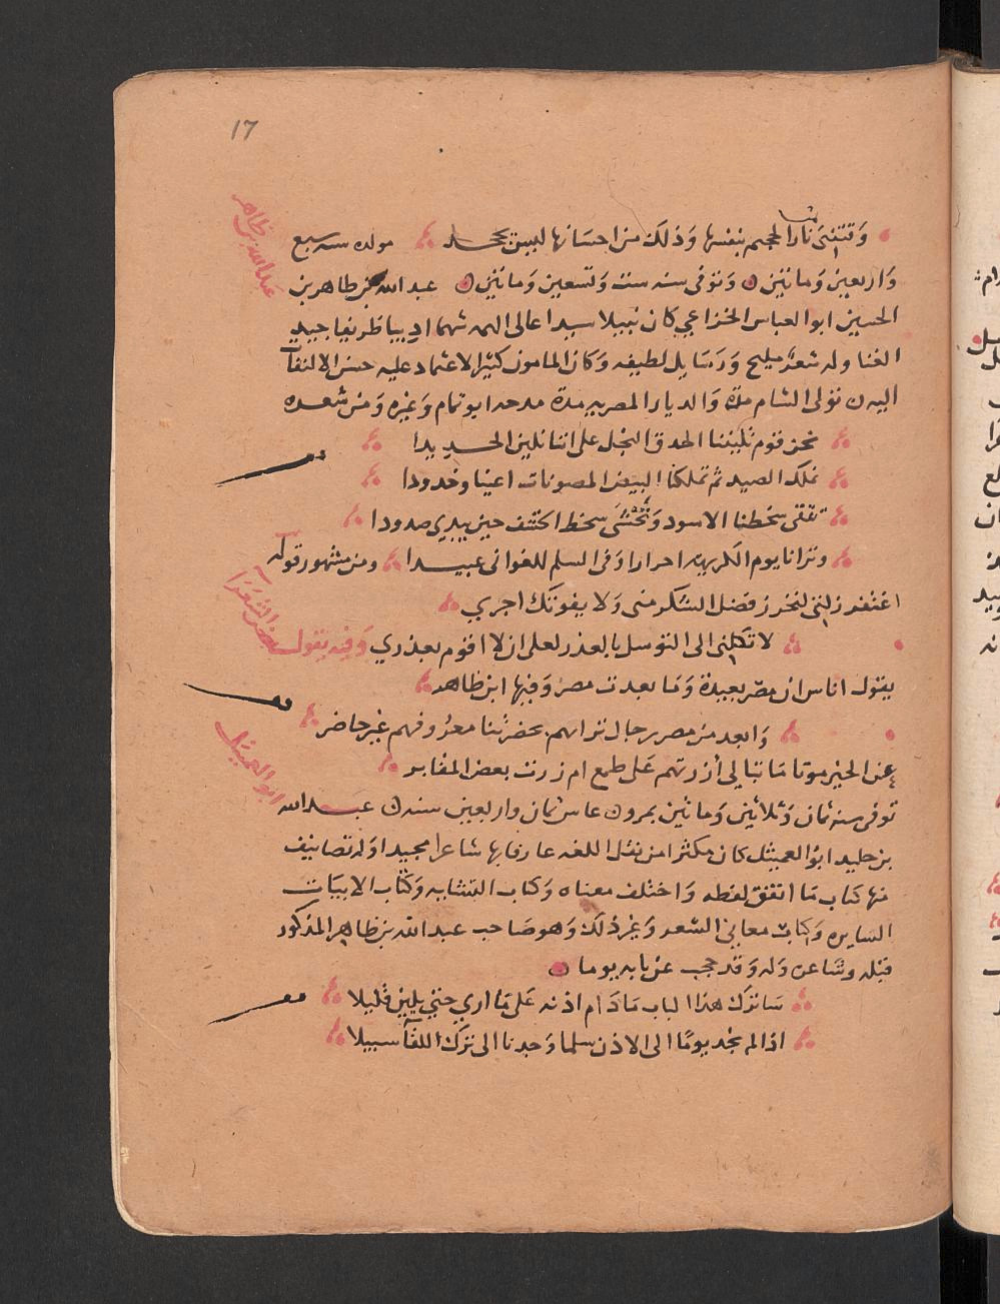 17
وتتقي نار الجحيم بنفسها وذلك من احسانها ليس يجحد مولده سنه سبع
واربعين ومائتين وتوفى سنه ست وتسعين ومائتين عبد الله بن طاهر بن
عبد الله بن طاهر
الحسين ابو العباس الخزاعي كان نبيلا سيدا عالى الهمه شهما اديبا ظريفا جيد
الغنا وله شعر مليح ورسايل لطيفه وكان المامون كثير الاعتماد عليه حسن الالتفات
اليه تولى الشام مدة والديار المصريه مدة مدحه ابو تمام وغيره ومن شعره
نحن قوم تليننا الحدق النجل على اننا نلين الحديدا
نملك الصيد ثم تملكنا البيض المصونات اعينا وخدودا
تتقى سخطنا الاسود وتخشى سخط الخشف حين يبدي صدودا
وترانا يوم الكريهة احرارا وفى السلم للغوانى عبيدا ومن مشهور قوله
اغتفر زلتى لتحرز فضل الشكر منى ولا يفوتك اجري
لا تكلنى الى التوسل بالعذر لعلى ان لا اقوم بعذري وفيه يقول بعض الشعرا
يقول اناس ان مصر بعيدة وما بعدت مصر وفيها ابن طاهر
وابعد من مصر رجال تراهم بحضرتنا معروفهم غير حاضر
عن الخير موتا ما تبالي أزرتهم على طمع ام زرت بعض المقابر
توفى سنه ثمان وثلاثين ومائتين بمرو عاش ثمان واربعين سنه عبد الله
ابو العميثل
بن خليد ابو العميثل كان مكثرا من نقل اللغه عارفا بها شاعرا مجيدا وله تصانيف
منها كتاب ما اتفق لفظه واختلف معناه وكتاب التشابه وكتاب الابيات
السايره وكتاب معاني الشعر وغير ذلك وهو صاحب عبد الله بن طاهر المذكور
قبله وشاعره وله وقد حجب عن بابه يوما
ساترك هذا الباب ما دام اذنه على ما اري حتي يلين قليلا
اذا لم نجد يوما الى الاذن سلما وجدنا الى ترك اللقا سبيلا